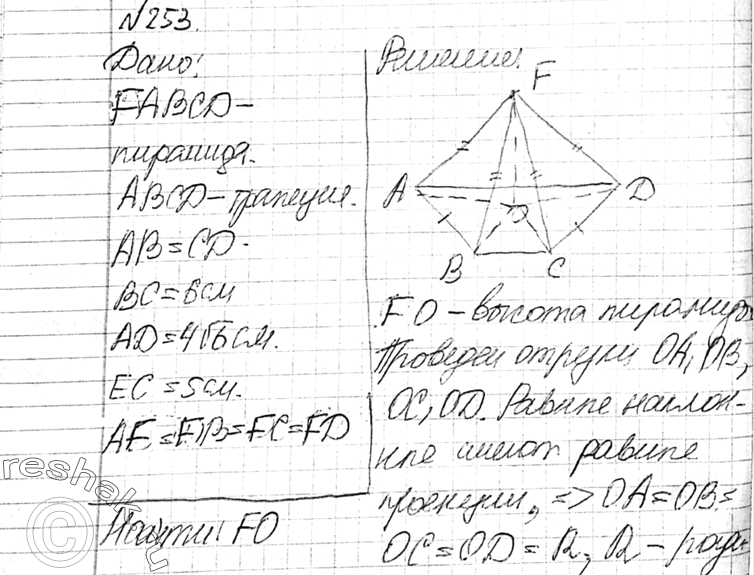 №253.
Дано:
FABCD –
пирамида.
ABCD – трапеция.
AB = CD.
BC = 6см
AD = 4√6 см.
EC = 5см.
AE = EB = EC = FD
Найти: FO
Решение:
F
A
D
O
B
C
FO – высота пирамиды
Проведем отрезки OA, OB,
OC, OD. Равные наклон-
ные имеют равные
проекции, => OA = OB =
OC = OD = R, R – ради-
reshak.ru
©